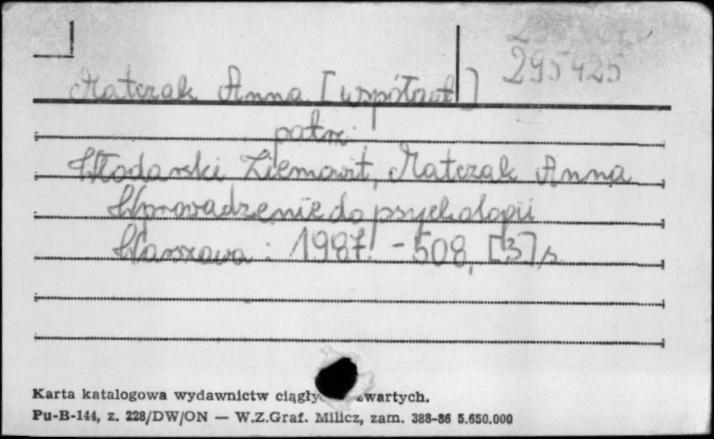 295425
Matczak Anna [współaut.]
patrz:
Włodarski Ziemowit, Matczak Anna
Wprowadzenie do psychologii
Warszawa : 1987. - 508, [3] s.
Karta katalogowa wydawnictw ciągły zwartych.
Pu-B-144, z. 228/DW/ON — W.Z.Graf. Milicz, zam. 388-86 5.650.000